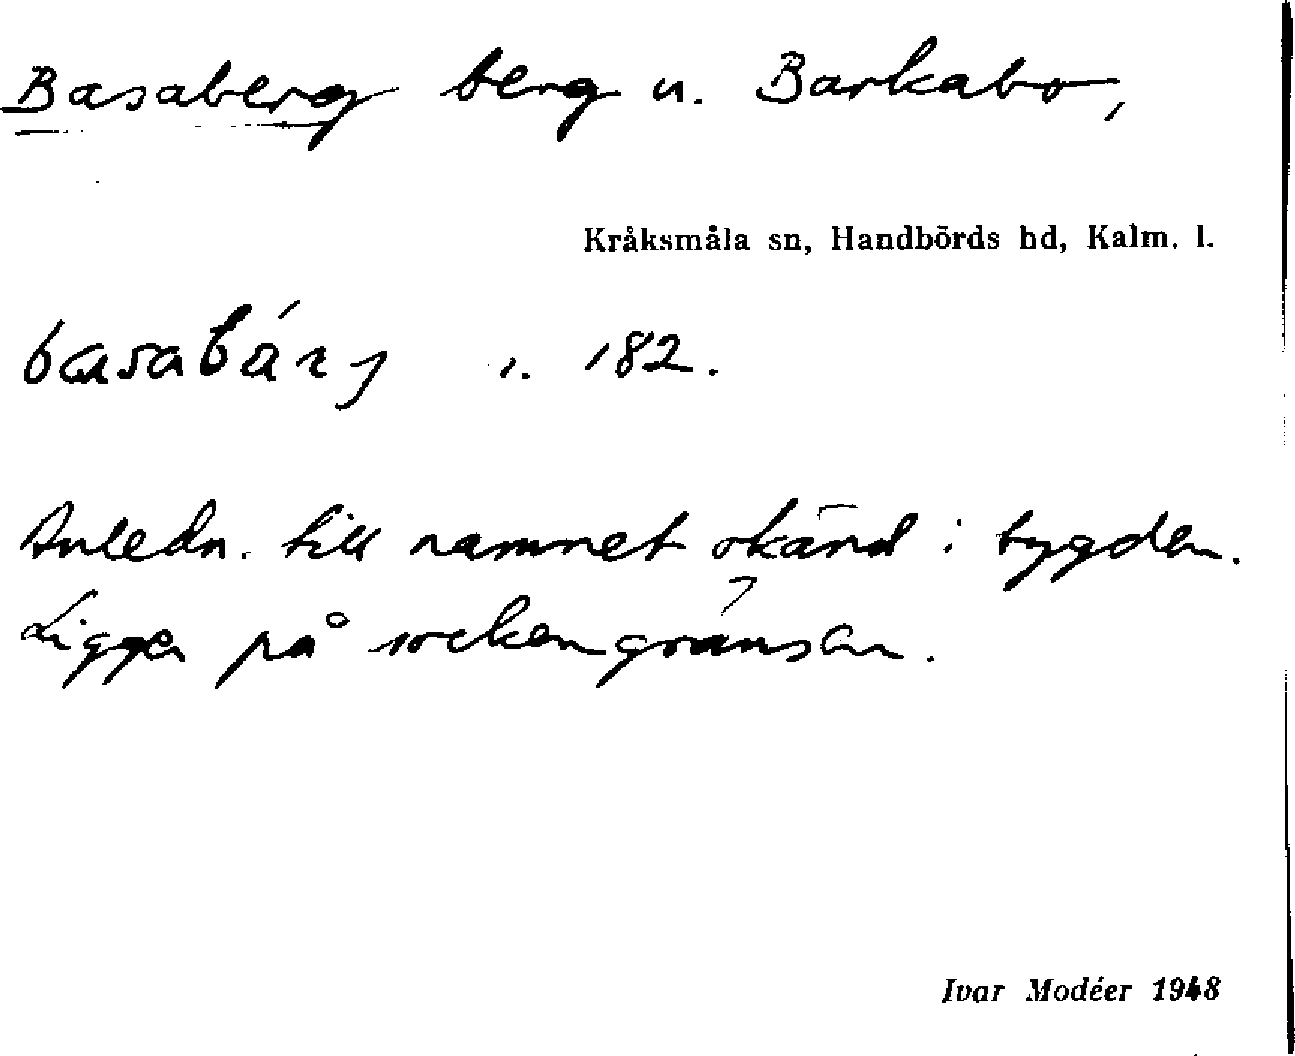 Basaberg berg u. Barkabo,
Kråksmåla sn, Handbörds hd, Kalm. l.
basabárj 1. 182.
Anledn. till namnet okänd i bygden.
Ligger på sockengränsen.
Ivar Modéer 1948